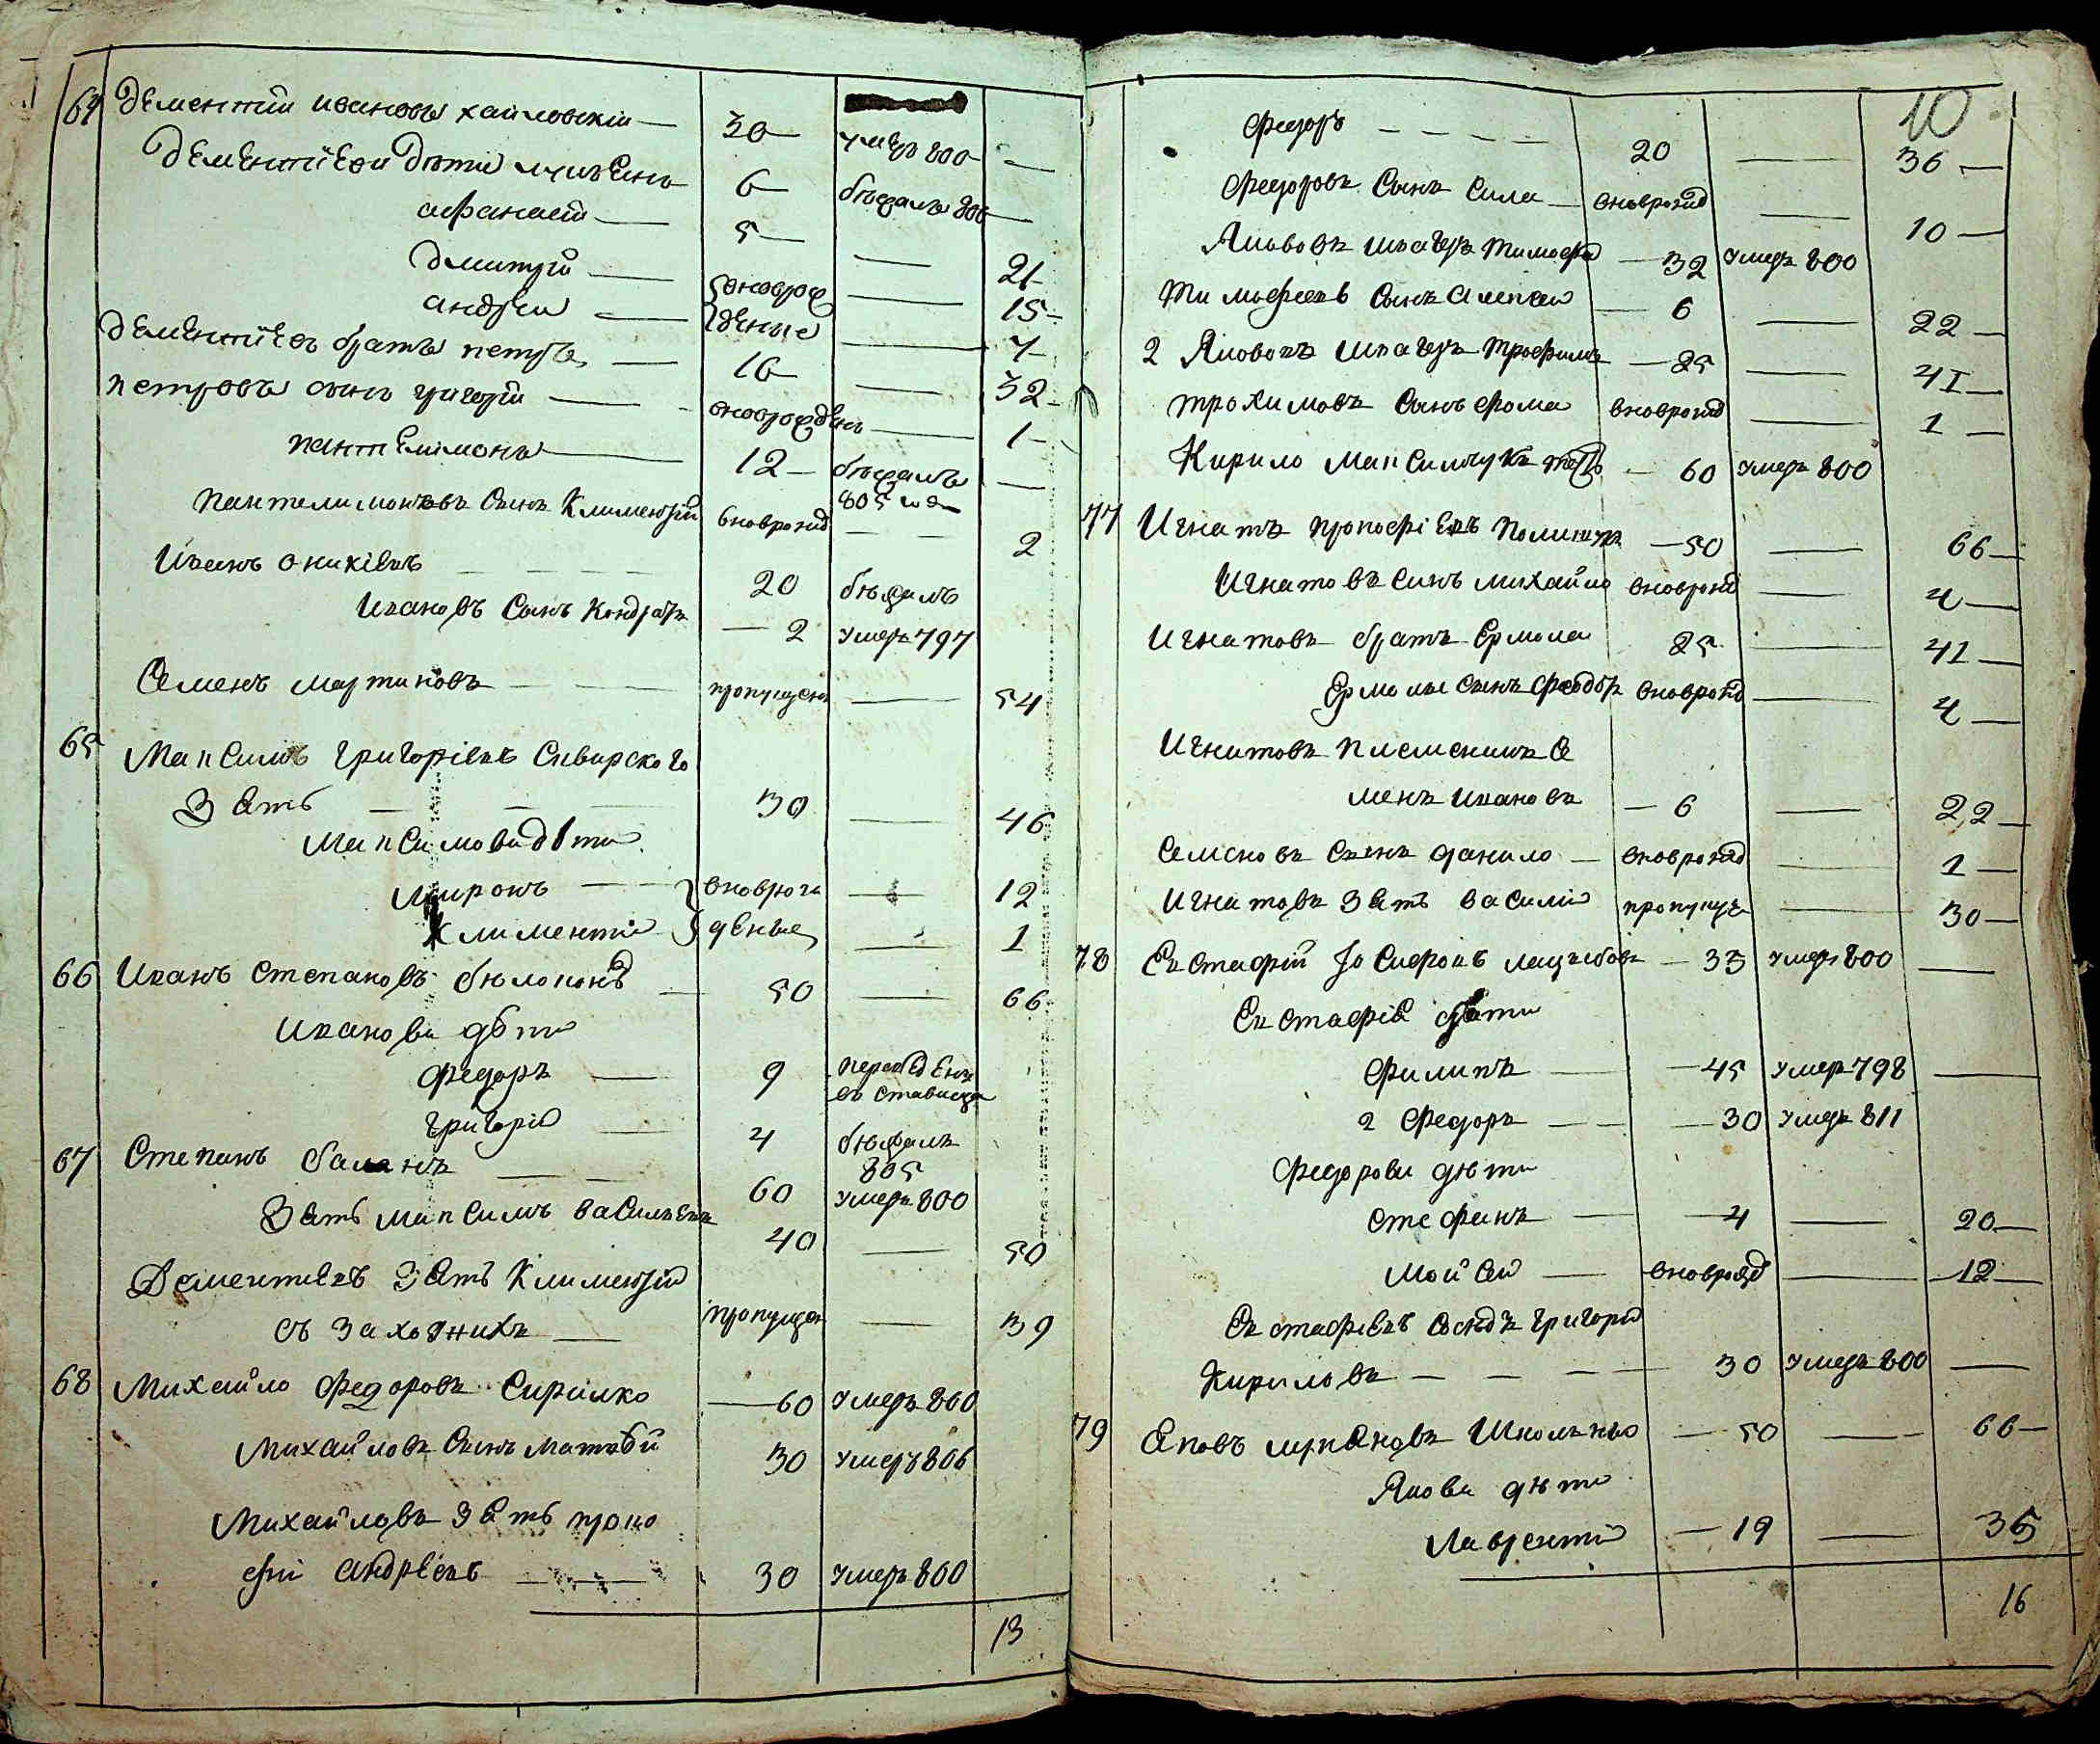 64 Дементии Ивановъ Хаиловскїи — 30 — умеръ 800 —
Дементїеви дѣти 6 — бѣжалъ 806 —
афанасїй — 5 — — 21 —
Дмитрїй — новорож — 15 —
андреи — денные — 7 —
Дементїевъ братъ петръ — 16 — — 32 —
петровъ сынъ григорїй — вноврожденъ — 1 —
пантелимонъ — 12 — бѣжалъ —
805 год
Пантелимоновъ Сынъ Климентїй вноврожд — — 2
Иванъ Оникїевъ — — — — 20 бѣжалъ
Ивановъ Сынъ Кондратъ — 2 умеръ 797
Семенъ Мартиновъ — — пропущенъ — 54
65 Максимъ Григорїевъ Сиварского
Зять — — — 30 — 46
Максимови дѣти
Миронъ — вноврож — 12
Климентїй денные — 1
66 Иванъ Степановъ бѣлоконь — 50 — 66
Иванови дѣти
Федоръ — 9 переведенъ
въ ставище
григорїй — 4 бѣжалъ
67 Степанъ — — 805
60 умеръ 800
Зять Максимъ Васильевъ
40 — 50
Дементиевъ Зять Климентїй
съ захожихъ — пропущен — 39
68 Михайло Федоровъ — 60 умеръ 800
Михайловъ Сынъ Матвѣй 30 умеръ 806
Михайловъ Зять проко
фїй андрѣевъ — — 30 умеръ 800
13
10
Федоръ — — — — 20 — 36 —
Федоровъ Сынъ Сила — вноврожд — 10 —
Яковъ швагеръ Тимофей — 32 умеръ 800
Тимофеевъ Сынъ Алексей — 6 — 22 —
2 Яковъ швагеръ Трофимъ — 25 — 41 —
трохимовъ Сынъ Фома вноврожд — 1 —
Кирило Максимчукъ — 60 умеръ 800
77 Игнатъ Прокофїевъ — 50 — 66 —
Игнатовъ синъ михайло вноврожд — 4 —
Игнатовъ братъ Ермола 25 — 41 —
Ермолы сынъ Феодоръ вноврожд — 4 —
Игнатовъ племеникъ Се
менъ Ивановъ — 6 — 22 —
Семеновъ Сынъ данило — вноврожд — 1 —
Игнатовъ Зять Василїй пропущен — 30 —
78 Евстафїй — 33 умеръ 800 —
Евстафїя дѣти
Филипъ — — 45 умеръ 798 —
2 Федоръ — — — 30 умеръ 811
Федорови дѣти
Стефанъ — — 4 — 20 —
Мойсей — вноврожд — 12 —
Евстафїевъ Сосѣдъ григорїй
Кириловъ — — — — 30 умеръ 800 —
79 Яковъ — 50 — — 66 —
Якови дѣти
Лаврентїй — 19 — 35
16